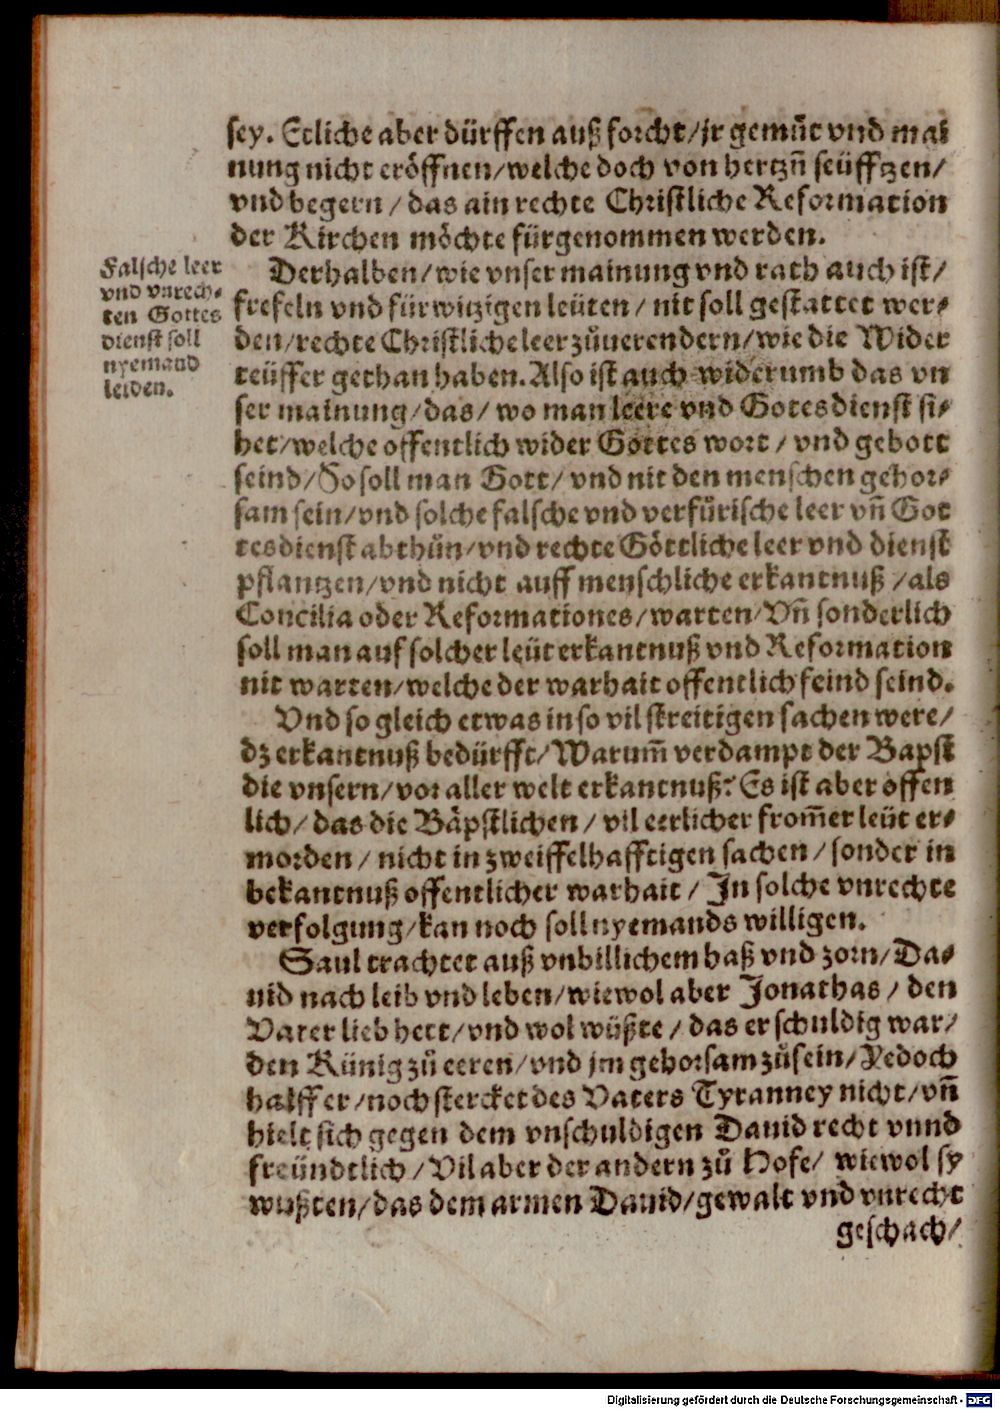 sey. Etliche aber dürffen auß forcht/jr gemüt vnd mai
nung nicht eröffnen/welche doch von hertzñ seüfftzen/
vnd begern / das ain rechte Christliche Reformation
der Kirchen möchte fürgenommen werden.
Falsche leer
vnd vnrech-
ten Gottes
dienst soll
nyemand
leiden.
Derhalben/wie vnser mainung vnd rath auch ist/
frefeln vnd fürwitzigen leüten / nit soll gestattet wer-
den/rechte Christliche leer zůuerendern/wie die Wider
teüffer gethan haben. Also ist auch widerumb das vn
ser mainung/das/ wo man leere vnd Gotesdienst si-
het/welche offentlich wider Gottes wort / vnd gebott
seind/So soll man Gott/ vnd nit den menschen gehor-
sam sein/vnd solche falsche vnd verfürische leer vñ Got
tesdienst abthůn/vnd rechte Göttliche leer vnd dienst
pflantzen/vnd nicht auff menschliche erkantnuß /als
Concilia oder Reformationes/warten/Vñ sonderlich
soll man auf solcher leüt erkantnuß vnd Reformation
nit warten/welche der warhait offentlich feind seind.
Vnd so gleich etwas in so vil streitigen sachen were/
dz erkantnuß bedürfft/Warum̃ verdampt der Bapst
die vnsern/vor aller welt erkantnuß? Es ist aber offen
lich/ das die Bäpstlichen / vil eerlicher from̃er leüt er-
morden / nicht in zweiffelhafftigen sachen / sonder in
bekantnuß offentlicher warhait / In solche vnrechte
verfolgung/kan noch soll nyemands willigen.
Saul trachtet auß vnbillichem haß vnd zorn/Da-
uid nach leib vnd leben/wiewol aber Jonathas / den
Vater lieb hett/vnd wol wüßte / das er schuldig war/
den Künig zů eeren/vnd jm gehorsam zůsein/Yedoch
halff er/noch stercket des Vaters Tyranney nicht/vñ
hielt sich gegen dem vnschuldigen Dauid recht vnnd
freündtlich/Vil aber der andern zů Hofe/ wiewol sy
wußten/das dem armen Dauid/gewalt vnd vnrecht
geschach/
Digitalisierung gefördert durch die Deutsche Forschungsgemeinschaft - DFG